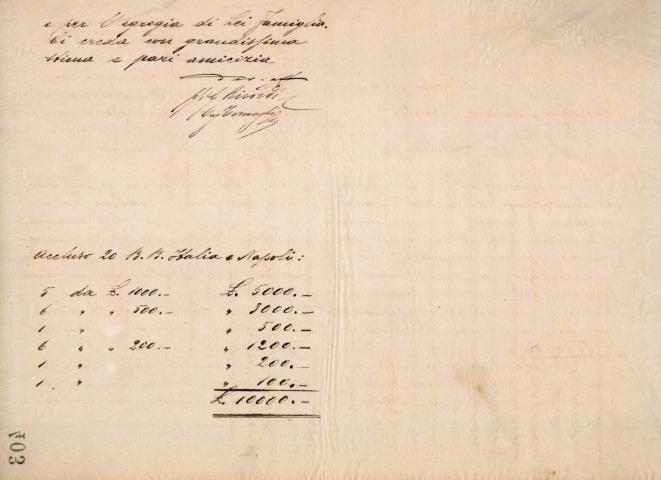 e per l'egregia di Lei famiglia.
Ci creda con grandissima
stima e pari amicizia
Dev. aff
Ricordi
Accluso 20 B. B. Italia e Napoli:
5 da £. 1000.— £. 5000.—
6 " " 500.— " 3000.—
1 " " 500.—
6 " " 200.— " 1200.—
1 " " 200.—
1. " " 100.—
£. 10000.—
403